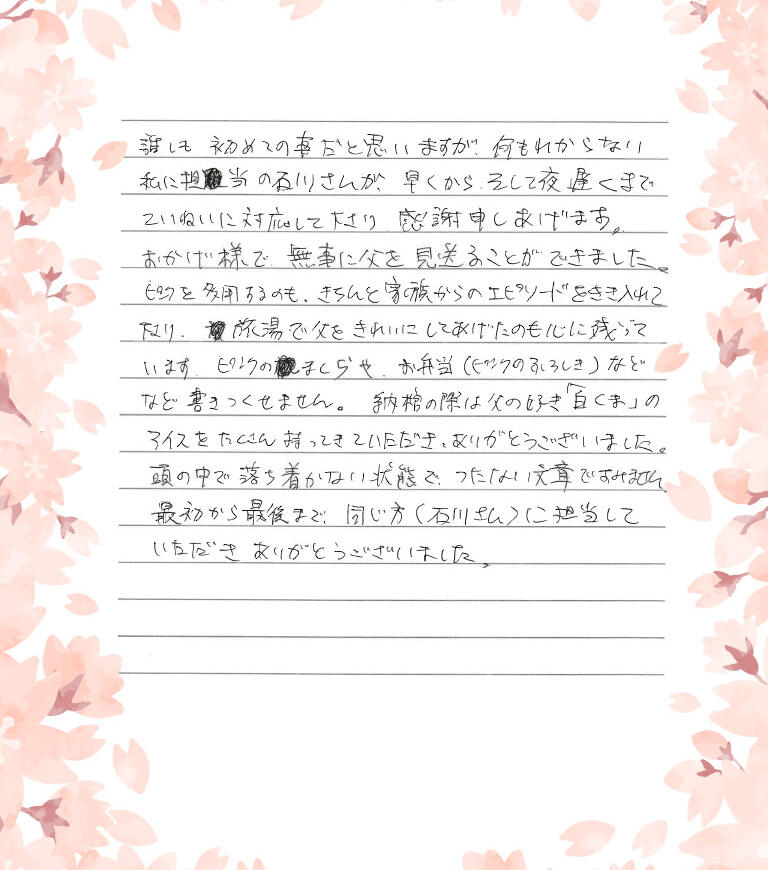 誰しも初めての事だと思いますが、何もわからない
私に担当の石川さんが、早くから、そして夜遅くまで
ていねいに対応して下さり、感謝申しあげます。
おかげ様で、無事に父を見送ることができました。
ピンクを多用するのも、きちんと家族からのエピソードをきき入れて
下さり、旅湯で父をきれいにしてあげたのも心に残って
います。ピンクのまくらや、お弁当(ピンクのふろしき)など
など書きつくせません。納棺の際は父の好き「白くま」の
アイスをたくさん持ってきていただき、ありがとうございました。
頭の中で落ち着かない状態で、つたない文章ですみません。
最初から最後まで、同じ方(石川さん)に担当して
いただきありがとうございました。